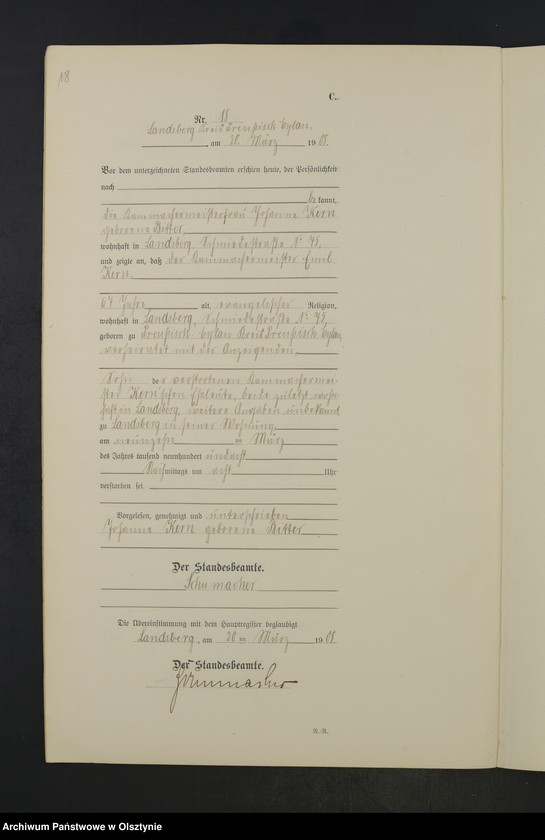 18
C.
Nr. 18
Landsberg Kreis Preußisch Eylau,
am 20. März 1908.
Vor dem unterzeichneten Standesbeamten erschien heute, der Persönlichkeit
nach
bekannt,
die Kammachermeisterfrau Johanna Kern
geborene Bitter,
wohnhaft in Landsberg, Schmiedestraße No 75,
und zeigte an, daß der Kammachermeister Emil
Kern
67 Jahre alt, evangelischer Religion,
wohnhaft in Landsberg, Schmiedestraße No 75,
geboren zu Preußisch-Eylau Kreis Preußisch Eylau,
verheiratet mit der Anzeigenden,
Sohn der verstorbenen Kammachermei-
ster Kern'schen Eheleute, beide zuletzt wohn-
haft in Landsberg, weitere Angaben unbekannt
zu Landsberg in seiner Wohnung
am neunzehnten März
des Jahres tausend neunhundert und acht
Nachmittags um acht Uhr
verstorben sei.
Vorgelesen, genehmigt und unterschrieben
Johanna Kern geborene Bitter
Der Standesbeamte.
Schumacher
Die Übereinstimmung mit dem Hauptregister beglaubigt
Landsberg, am 20ten März 1908.
Der Standesbeamte.
Schumacher
N.-R.
Archiwum Państwowe w Olsztynie